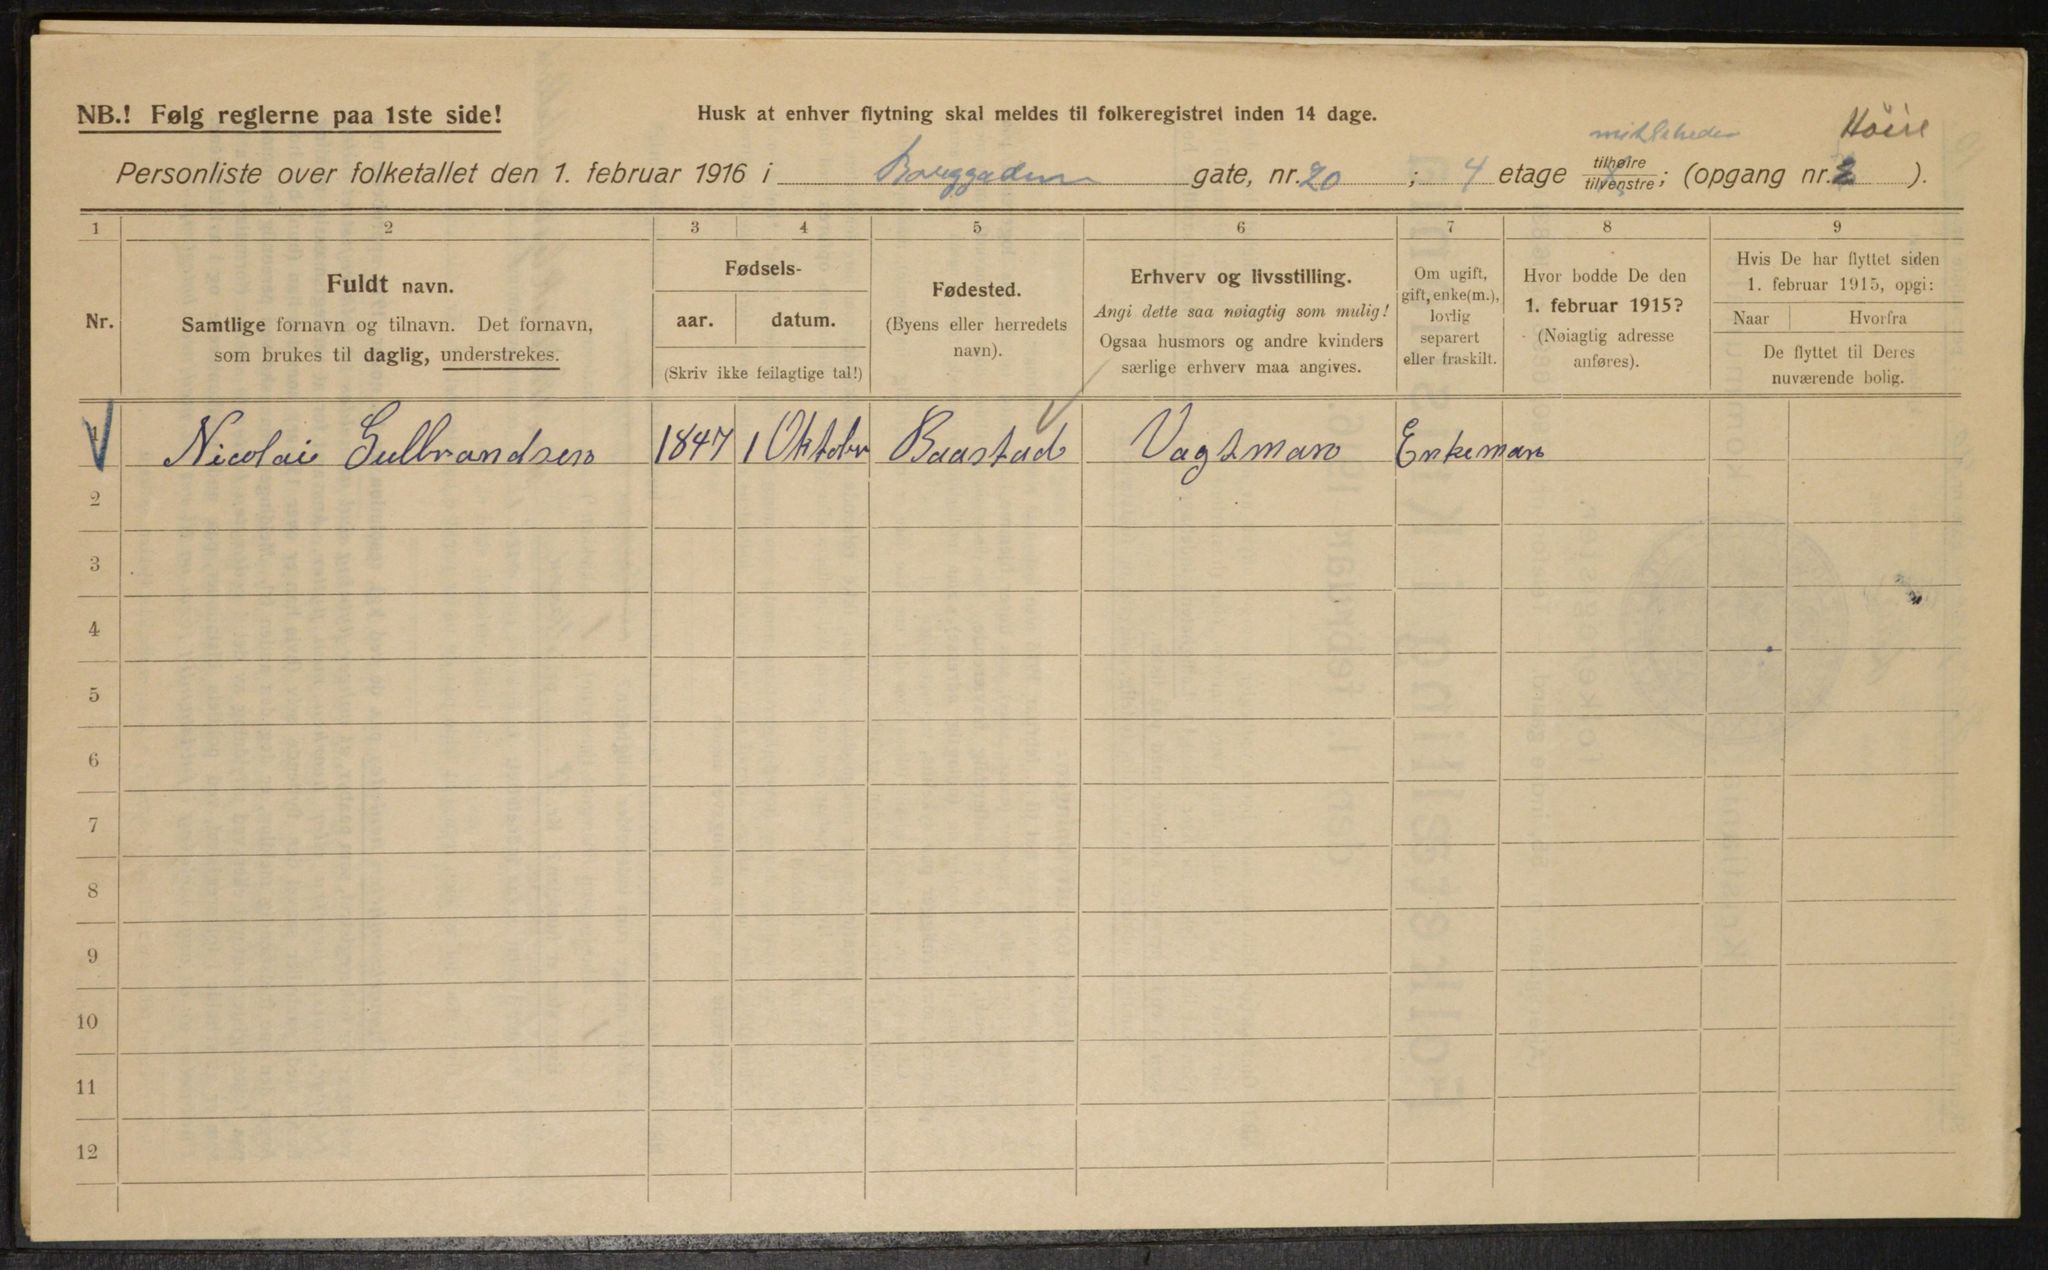 NB.! Følg reglerne paa 1ste side!
Husk at enhver flytning skal meldes til folkeregistret inden 14 dage.
Høire
Personliste over folketallet den 1. februar 1916 i Borggaden gate, nr. 20; 4 etage tilhøire/tilvenstre; (opgang nr. 2).
1 2 3 4 5 6 7 8 9
Nr.
Fuldt navn.
Samtlige fornavn og tilnavn. Det fornavn,
som brukes til daglig, understrekes.
Fødsels-
aar. datum.
(Skriv ikke feilagtige tal!)
Fødested.
(Byens eller herredets
navn).
Erhverv og livsstilling.
Angi dette saa nøiagtig som mulig!
Ogsaa husmors og andre kvinders
særlige erhverv maa angives.
Om ugift,
gift, enke(m.),
lovlig
separert
eller fraskilt.
Hvor bodde De den
1. februar 1915?
(Nøiagtig adresse
anføres).
Hvis De har flyttet siden
1. februar 1915, opgi:
Naar Hvorfra
De flyttet til Deres
nuværende bolig.
1 Nicolai Gulbrandsen 1847 1 Oktober Baastad Vagtman Enkeman
2
3
4
5
6
7
8
9
10
11
12